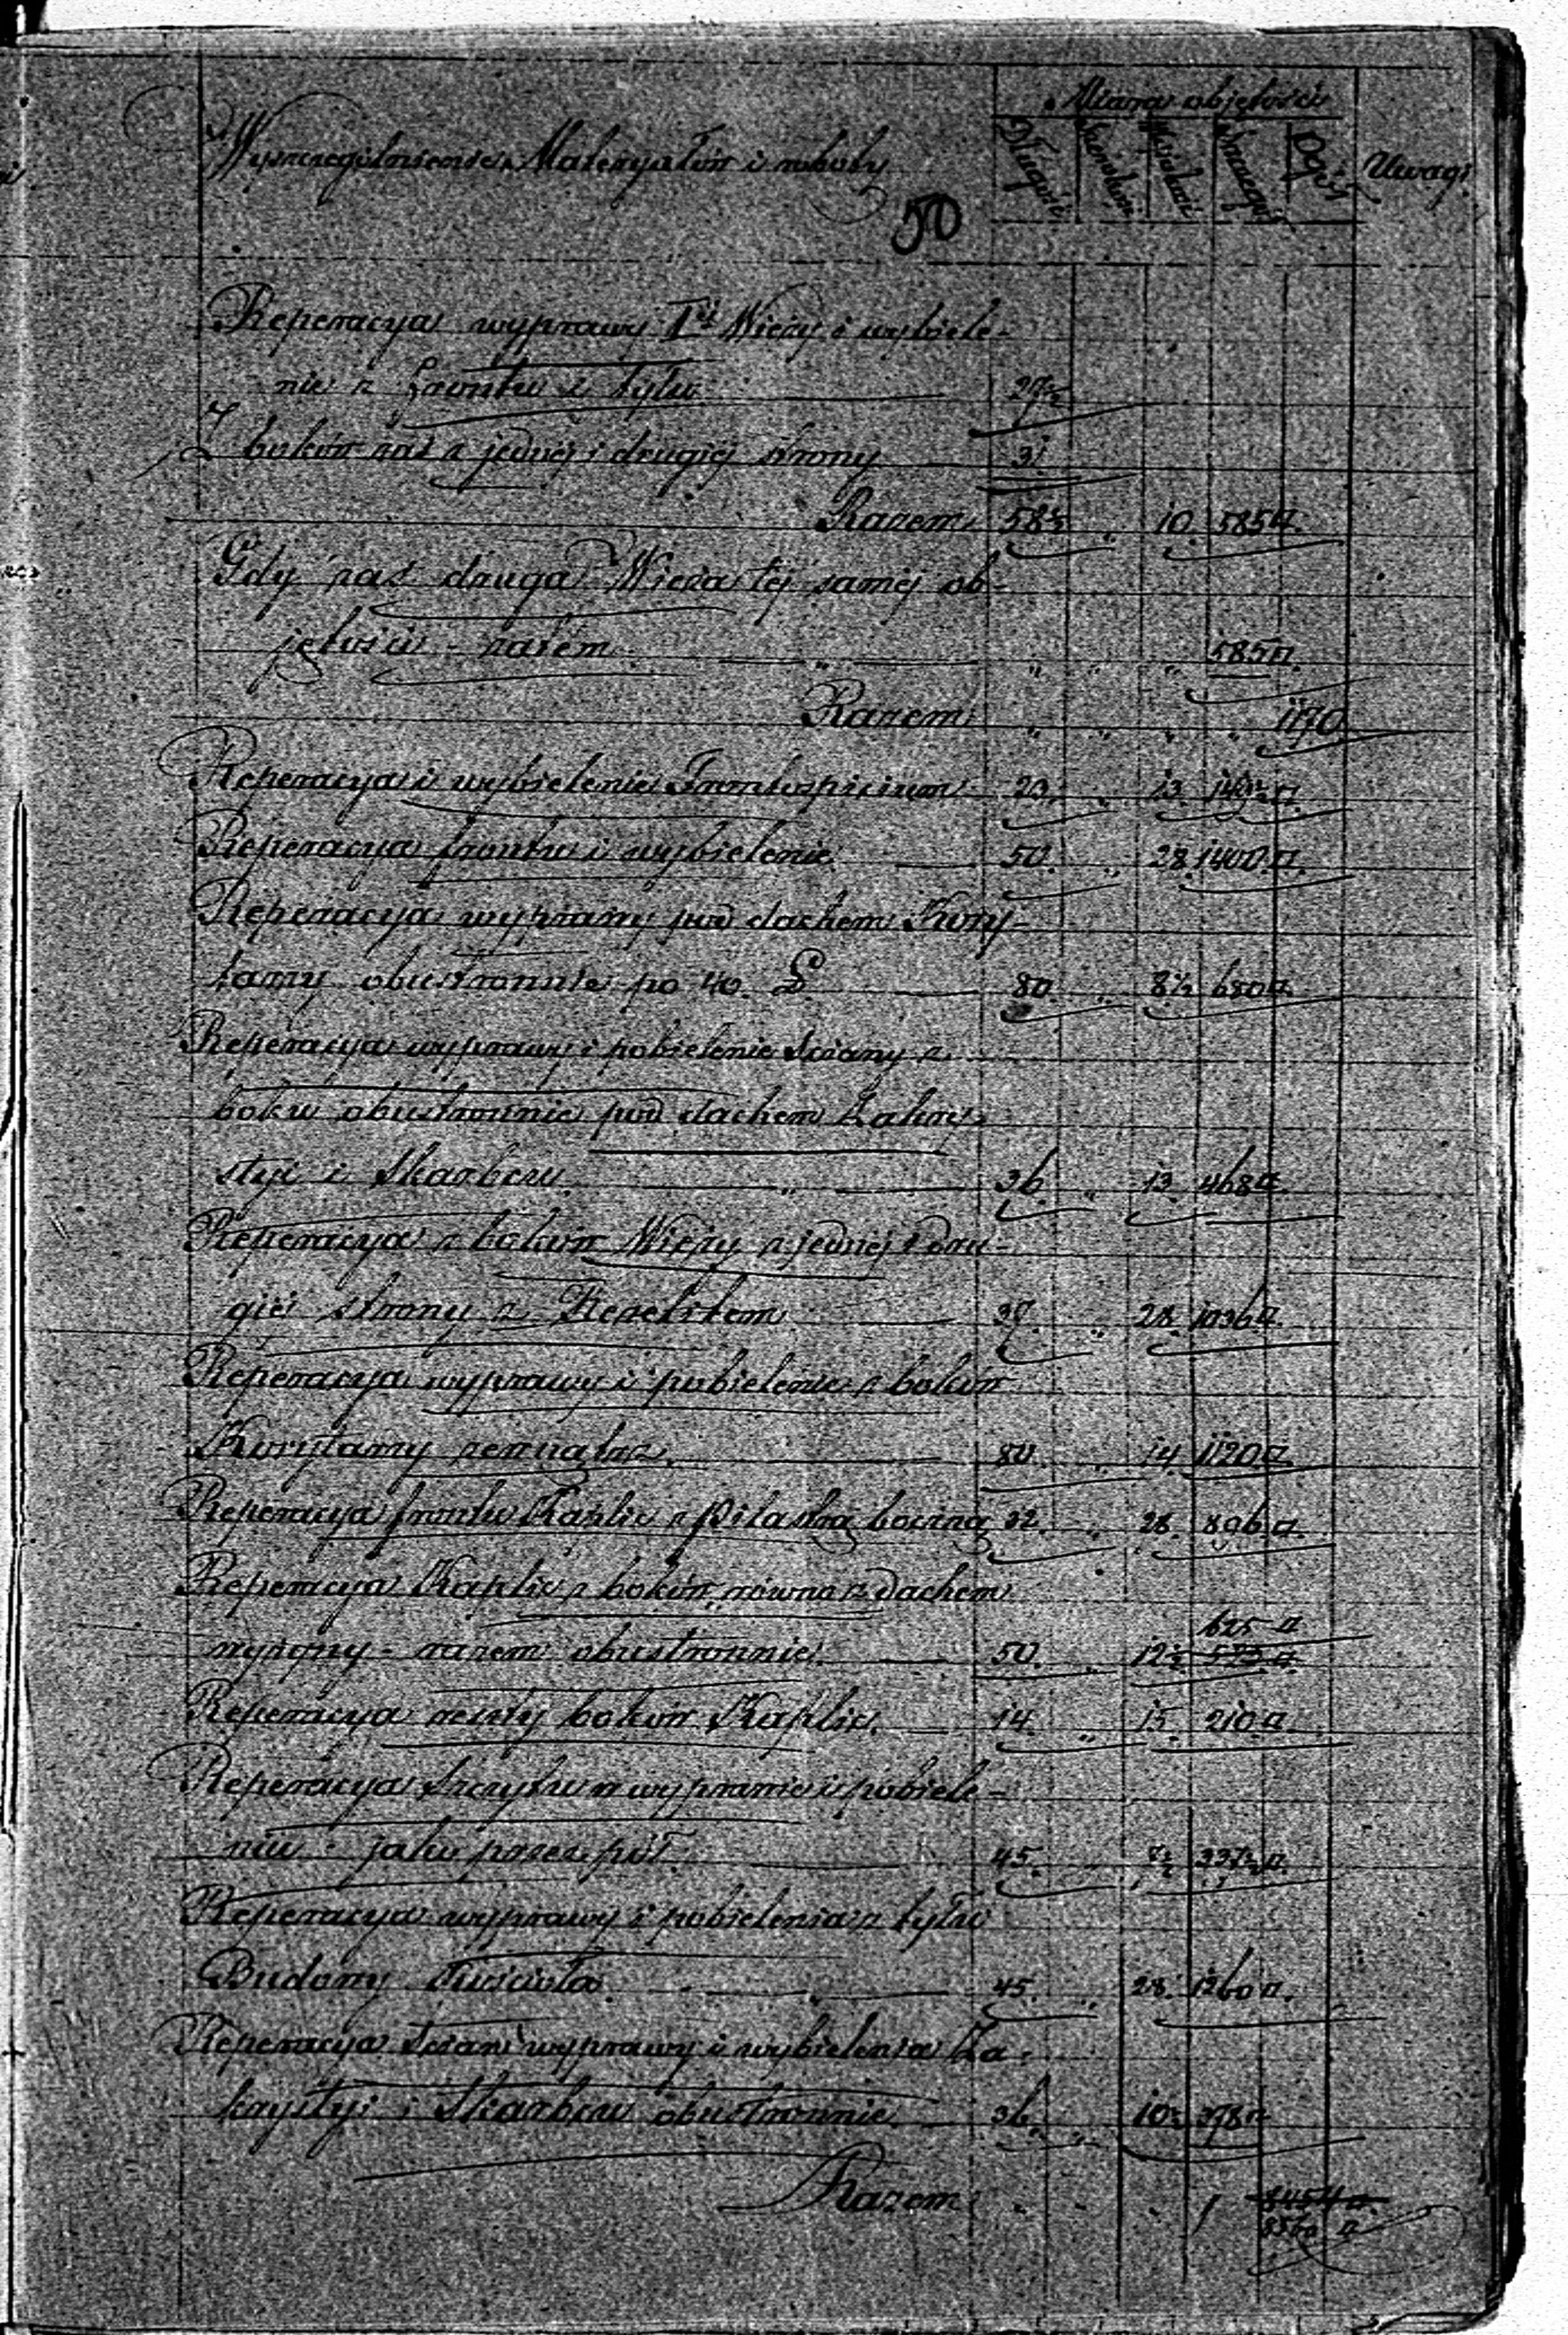 Miara objętości
Wyszczególnienie Materyałów i roboty
Długość Szerokość Wysokość Szczegół Ogół Uwagi
50
Reperacya wyprawy 1éj Wieży i wybiele-
nie z frontu i tyłu 27½
Z boków zaś z jednéj i drugiéj strony 31
Razem 58½ " 10 585□
Gdy zaś druga Wieża téj saméj ob-
jętości - zatem " " " " 585□
Razem " " " " 1170
Reperacya i wybielenie Frontospicium 23 " 13 149½□
Reperacya frontu i wybielenie 50 " 28 1400□
Reperacya wyprawy pod dachem Kury-
tarzy obustronnie po 40 80 " 8½ 680□
Reperacya wyprawy i pobielenie Sciany z
boku obustronnie pod dachem Zakry-
styi i Skarbcu " 36 " 13 468□
Reperacya z boków Wieży z jednéj i dru-
giéj strony z 37 " 28 1036□
Reperacya wyprawy i pobielenie z boków
Kurytarzy zewnątrz 80 " 14 1120□
Reperacya frontu Kaplic z Pilastrą boczną 32 " 28 896□
Reperacya Kaplic z boków, równo z dachem
625□
razem obustronnie 50 " 12½
Reperacya reszty boków Kaplic 14 " 15 210□
Reperacya Szczytu w wyprawie i pobiele-
niu - jako przez pół 45 7½ 337½□
Reperacya wyprawy i pobielenia z tyłu
Budowy Kościoła " 45 " 28 1260□
Reperacya Ścian wyprawy i wybielenia Za-
krystyi i Skarbcu obustronnie 36 " 10½ 378□
Razem " " " 8454□
8560 □